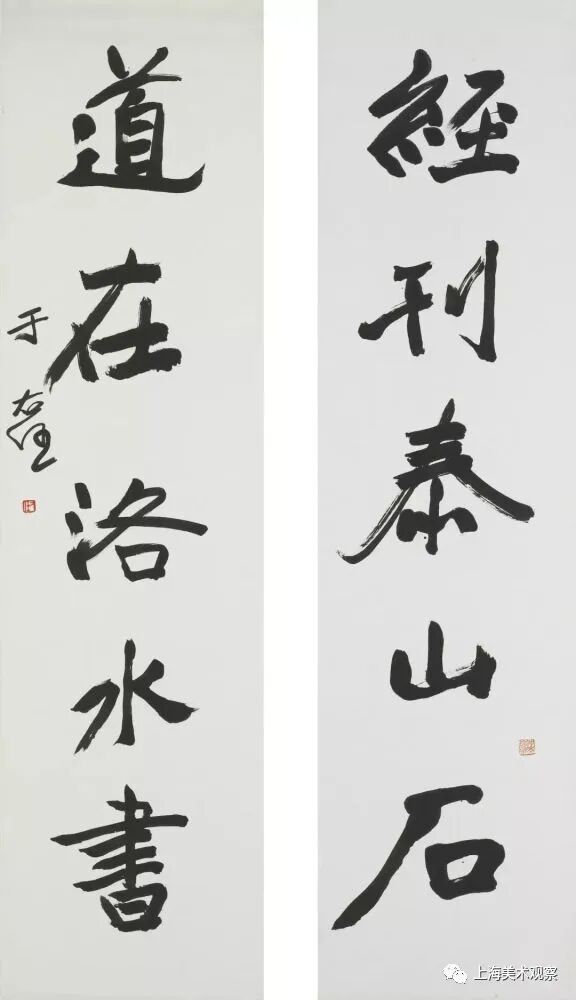 經刊泰山石
道在洛水書
于右任
上海美术观察